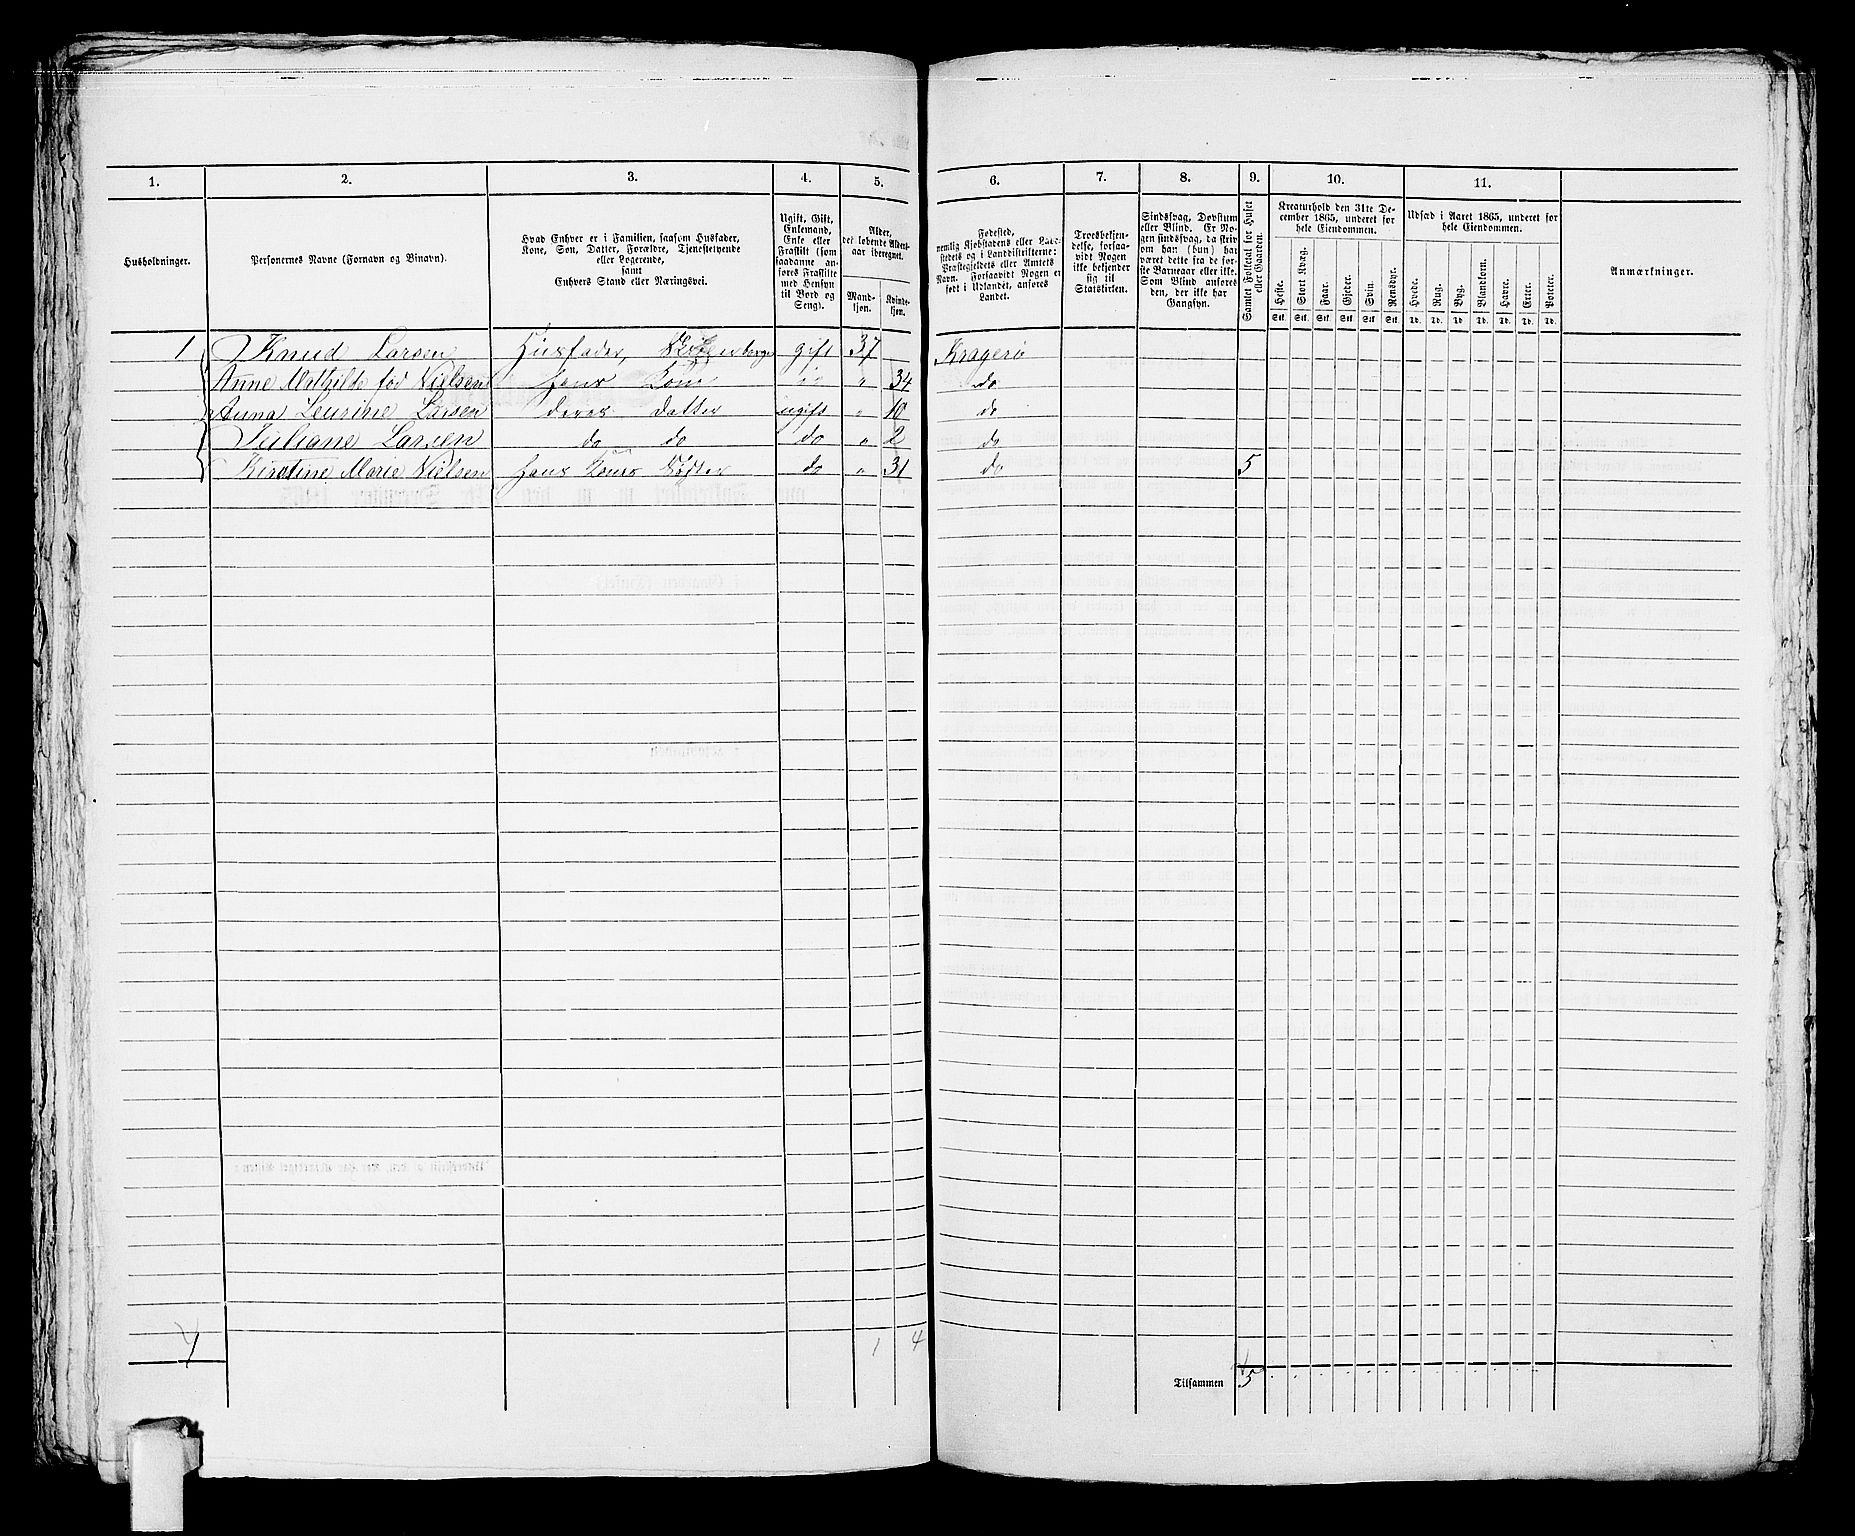 1. 2. 3. 4. 5. 6. 7. 8. 9. 10. 11.
Husholdninger.
Personernes Navne (Fornavn og Binavn).
Hvad Enhver er i Familien, saasom Husfader,
Kone, Søn, Datter, Forældre, Tjenestetyende
eller Logerende,
samt
Enhvers Stand eller Næringsvei.
Ugift, Gift,
Enkemand,
Enke eller
Fraskilt (som
saadanne an-
føres Fraskilte
med Hensyn
til Bord og
Seng).
Alder,
det løbende Alders-
aar iberegnet.
Mand-
kjøn.
Kvinde-
kjøn.
Fødested,
nemlig Kjøbstadens eller Lade-
stedets og i Landdistrikterne:
Præstegjeldets eller Amtets
Navn. Forsaavidt Nogen er
født i Udlandet, anføres
Landet.
Troesbekjen-
delse, forsaa-
vidt Nogen
ikke bekjender
sig til
Statskirken.
Sindssvag, Døvstum
eller Blind. Er No-
gen sindssvag, da skriv
om han (hun) har
været dette fra de før-
ste Barneaar eller ikke.
Som Blind anføres
den, der ikke har
Gangsyn.
Samlet Folketal for Huset
eller Gaarden.
Kreaturhold den 31te De-
cember 1865, underet for
hele Eiendommen.
Heste. Stort Kvæg. Faar. Gjeder. Svin. Rensdyr.
Stk. Stk. Stk. Stk. Stk. Stk.
Udsæd i Aaret 1865, underet for
hele Eiendommen.
Hvede. Rug. Byg. Blandkorn. Havre. Erter. Poteter.
Td. Td. Td. Td. Td. Td. Td.
Anmærkninger.
1 Knud Larsen Husfader, gift 37 Kragerø
Anne Mathilde fød Nielsen Hans Kone do " 34 do
Anna Leurine Larsen deres Datter ugift " 10 do
Juliane Larsen do do do " 2 do
Kirstine Marie Nielsen Hans Kones Søster do " 31 do 5
1 4
Tilsammen 5